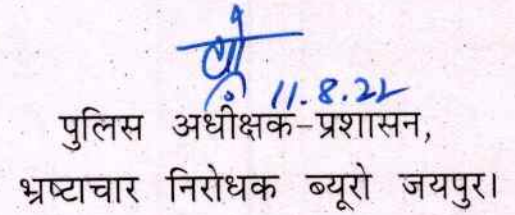 11.8.22
पुलिस अधीक्षक-प्रशासन,
भ्रष्टाचार निरोधक ब्यूरो जयपुर।